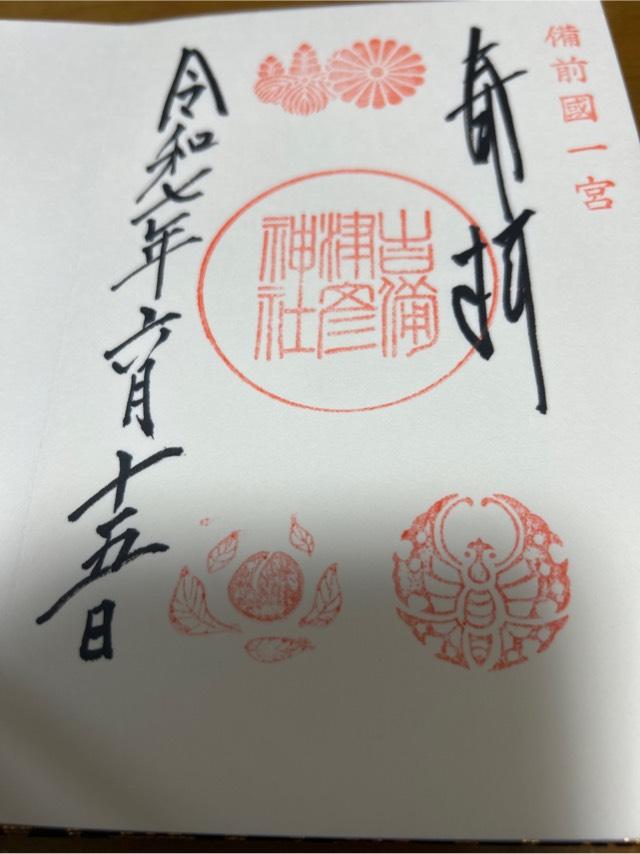 備前國一宮
奉拝
吉備
津彦
神社
令和七年六月十五日